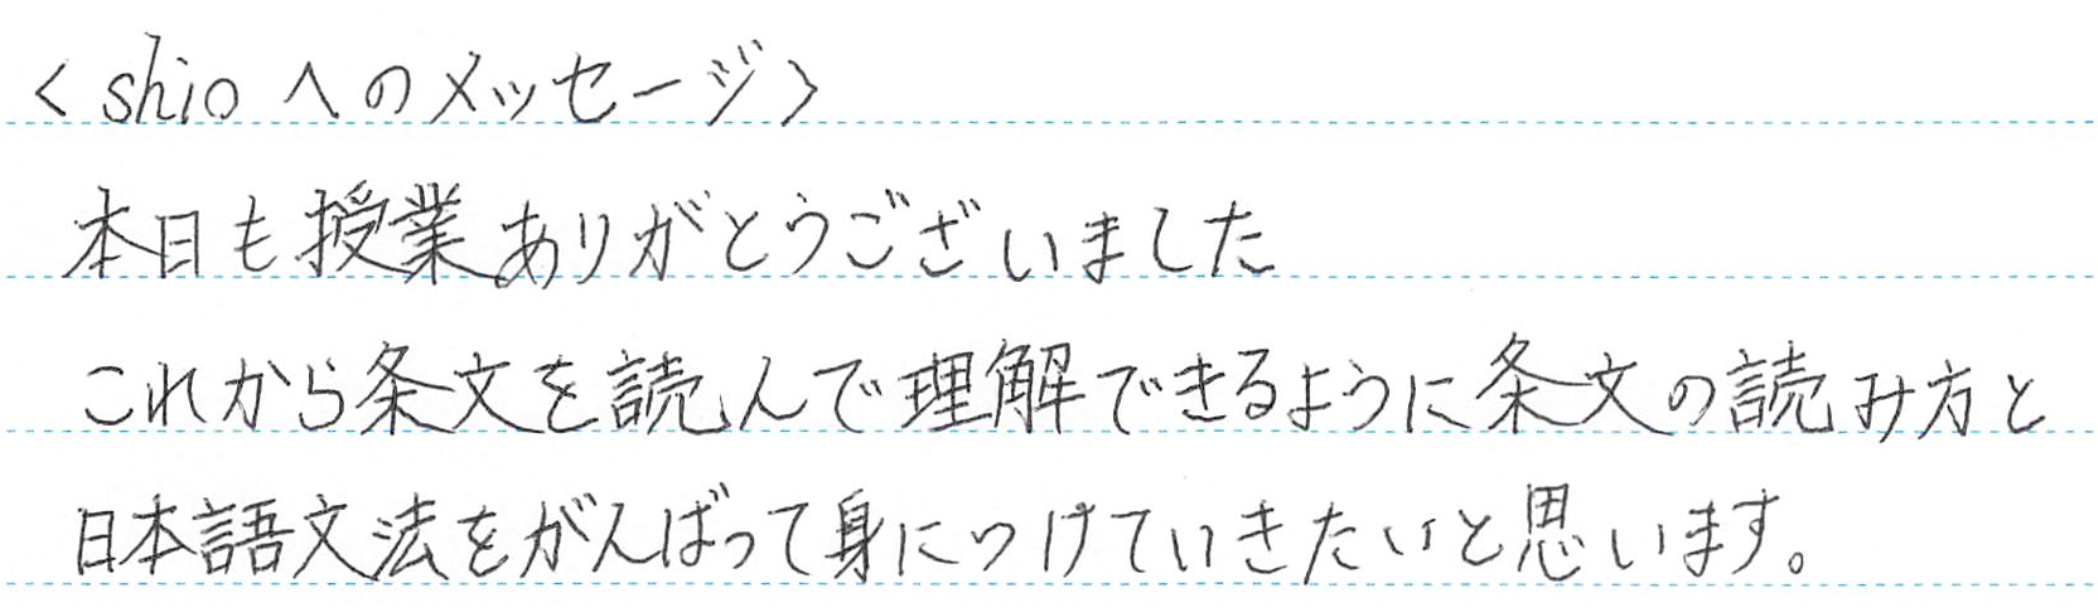 <shioへのメッセージ>
本日も授業ありがとうございました
これから条文を読んで理解できるように条文の読み方と
日本語文法をがんばって身につけていきたいと思います。